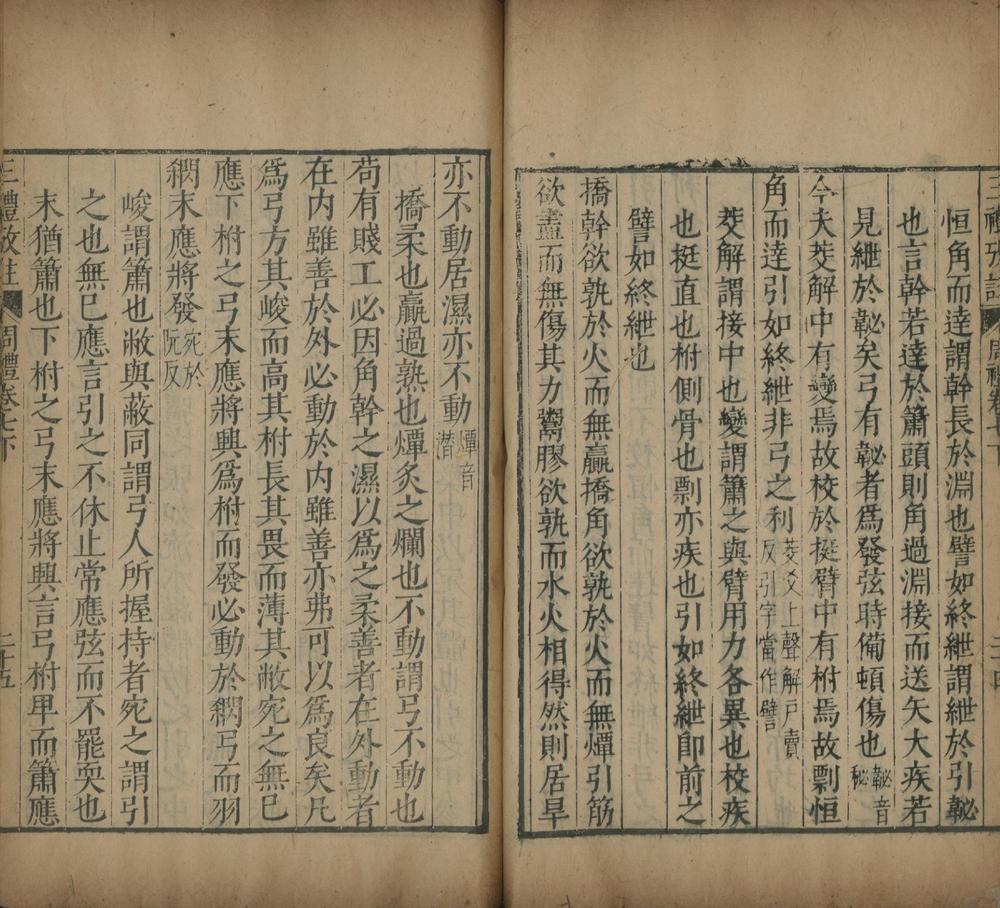 三禮攷註 周禮卷七下 二十四
恒角而逹謂幹長於淵也譬如終紲謂紲於引䪐
也言幹若逹於簫頭則角過淵接而送矢大疾若
見紲於䪐矣弓有䪐者爲發弦時備頓傷也䪐音秘
今夫茭解中有變焉故校於挺臂中有柎焉故剽恒
角而逹引如終紲非弓之利茭爻上聲解戸賣反引字當作譬
茭解謂接中也變謂簫之與臂用力各異也校疾
也挺直也柎側骨也剽亦疾也引如終紲即前之
譬如終紲也
撟幹欲孰於火而無贏撟角欲孰於火而無燂引筋
欲盡而無傷其力鬻膠欲孰而水火相得然則居旱
亦不動居濕亦不動燂音潛
撟柔也贏過熟也燂炙之爛也不動謂弓不動也
苟有賤工必因角幹之濕以爲之柔善者在外動者
在内雖善於外必動於内雖善亦弗可以爲良矣凡
爲弓方其峻而高其柎長其畏而薄其敝宛之無已
應下柎之弓末應將興爲柎而發必動於䋄弓而羽
䋄末應將發宛於阮反
峻謂簫也敝與蔽同謂弓人所握持者宛之謂引
之也無已應言引之不休止常應弦而不罷耎也
末猶簫也下柎之弓末應將興言弓柎卑而簫應
三禮攷註 周禮卷七下 二十五